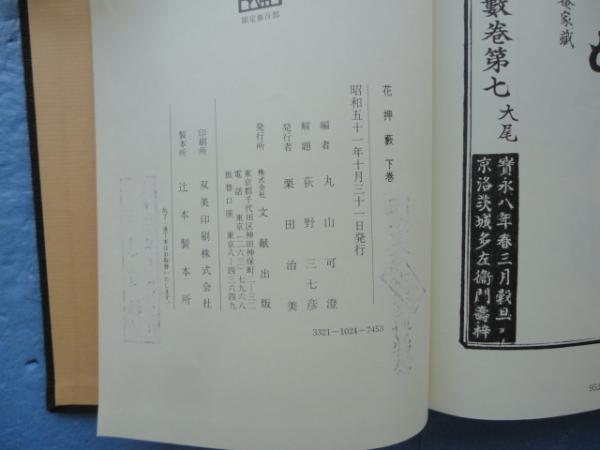 限定参百部
花押藪 下巻
昭和五十一年十月三十一日発行
編者 丸山可澄
解題 荻野三七彦
発行者 栗田治美
発行所 株式会社 文献出版
東京都千代田区神田神保町一ー三二
電話 東京(二六三)七九六八
振替口座 東京八ー四三六四九
印刷所 双美印刷株式会社
製本所 辻本製本所
3321-1024-7453
藪巻第七 大尾
寶永八年春三月穀旦
京洛茨城多左衞門壽梓